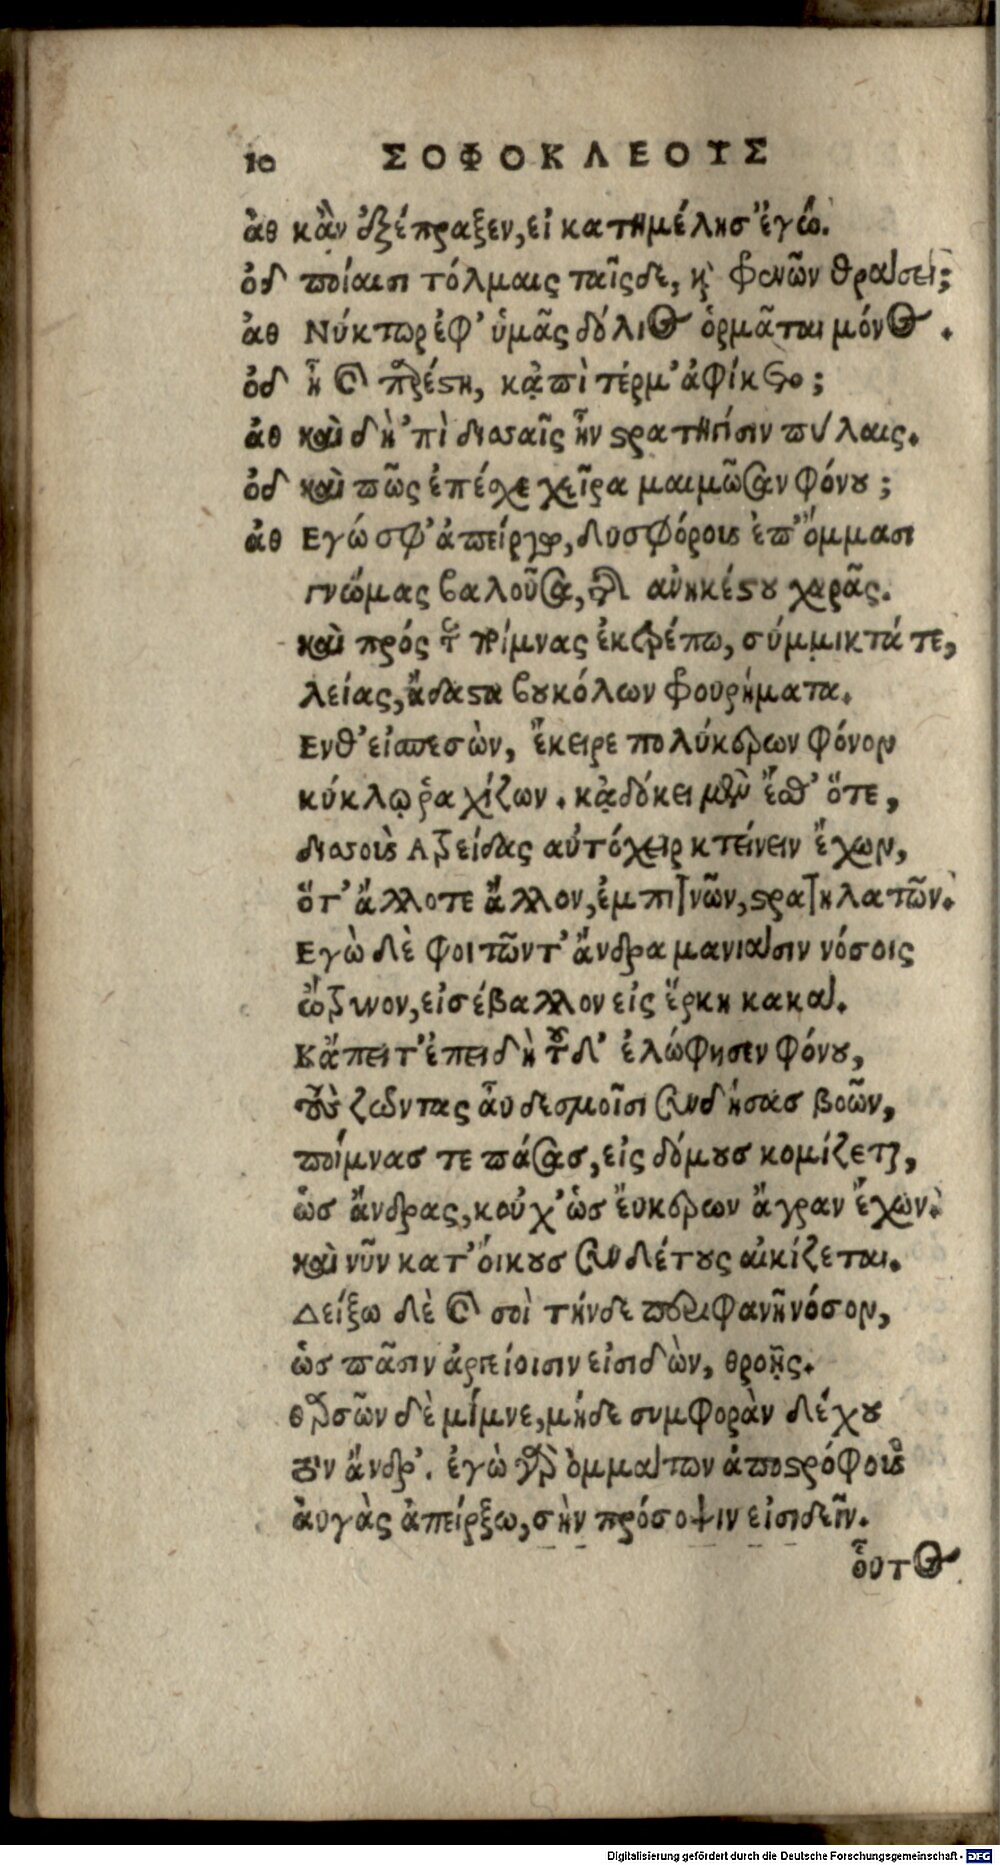 10 ΣΟΦΟΚΛΕΟΥΣ
ἀθ κἂν ἐξέπραξεν, εἰ κατημέλησ' ἐγώ.
ὀδ ποίαισι τόλμαις ταῖςδε, καὶ φρενῶν θράσει;
ἀθ Νύκτωρ ἐφ' ὑμᾶς δόλιος ὁρμᾶται μόνος.
ὀδ ἦ καὶ παρέστη, κἀπὶ τέρμ' ἀφίκετο;
ἀθ καὶ δὴ 'πὶ δισσαῖς ἦν στρατηγίσιν πύλαις.
ὀδ καὶ πῶς ἐπέσχε χεῖρα μαιμῶσαν φόνου;
ἀθ Εγώ σφ' ἀπείργω, δυσφόρους ἐπ' ὄμμασι
γνώμας βαλοῦσα, τῆς ἀνηκέστου χαρᾶς.
καὶ πρός τε ποίμνας ἐκτρέπω, σύμμικτά τε,
λείας, ἄδαστα βουκόλων φρουρήματα.
Ενθ' εἰσπεσὼν, ἔκειρε πολύκερων φόνον
κύκλῳ ῥαχίζων. κᾀδόκει μὲν ἔσθ' ὅτε,
δισσοὺς Ατρείδας αὐτόχειρ κτείνειν ἔχων,
ὅτ' ἄλλοτε ἄλλον, ἐμπιτνῶν, στρατηλατῶν.
Εγὼ δὲ φοιτῶντ' ἄνδρα μανιάσιν νόσοις
ὤτρυνον, εἰσέβαλλον εἰς ἕρκη κακά.
Κἄπειτ' ἐπειδὴ τοῦδ' ἐλώφησεν φόνου,
τοὺς ζῶντας αὖ δεσμοῖσι συνδήσας βοῶν,
ποίμνας τε πάσας, εἰς δόμους κομίζεται,
ὡς ἄνδρας, κοὐχ' ὡς εὔκερων ἄγραν ἔχων.
καὶ νῦν κατ' οἴκους συνδέτους αἰκίζεται.
Δείξω δὲ καὶ σοὶ τήνδε περιφανῆ νόσον,
ὡς πᾶσιν ἀργείοισιν εἰσιδὼν, θροῇς.
θαρσῶν δὲ μίμνε, μήδε συμφορὰν δέχου
τὸν ἄνδρ'. ἐγὼ γὰρ ὀμμάτων ἀποστρόφους
ἀυγὰς ἀπείρξω, σὴν πρόσοψιν εἰσιδεῖν.
οὗτος
Digitalisierung gefördert durch die Deutsche Forschungsgemeinschaft - DFG